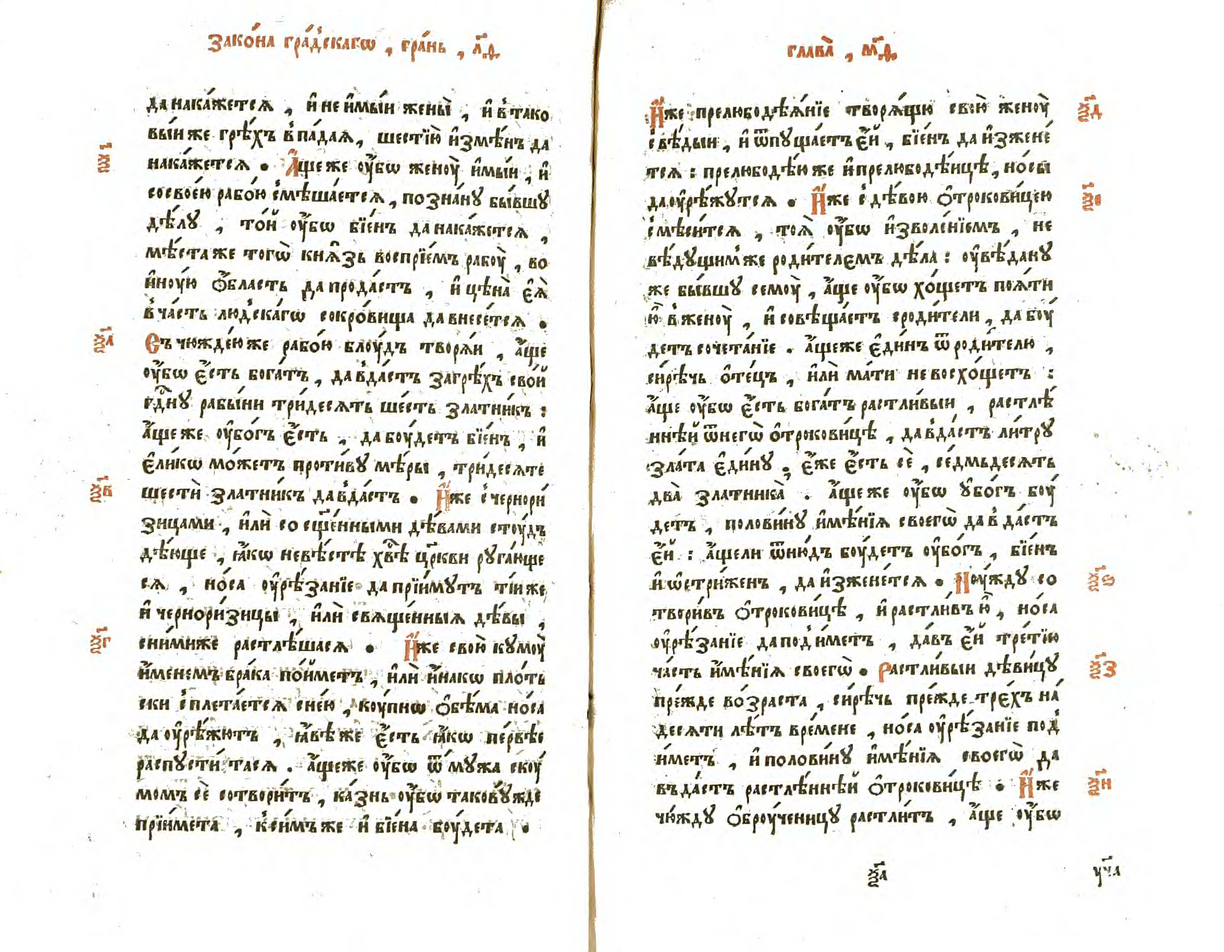 Зако́на гра́дскагѡ , гра́нь , л҃ѳ .
да нака́жетсѧ , и҆ не и҆мы́и жены̀ , и҆ в̾ тако
вы́иже грѣ́хъ в̾па́даѧ , шестїю и҆змѣ́нъ да
нака́жетсѧ . А҆́ще же ᲂу҆́бѡ женꙋ̀ и҆мы́и , и҆
со свое́ю рабо́ю смѣша́етсѧ , позна́нꙋ бы́вшꙋ
дѣ́лꙋ , то́й ᲂу҆́бѡ бїе́нъ да нака́жетсѧ ,
мѣ́ста же тогѡ̀ кнѧ́зь воспрїе́мъ рабꙋ̀ , во
и҆нꙋ́ю ѻ҆́бласть да прода́стъ , и҆ цѣна̀ є҆ѧ̀
в̾ ча́сть лю́дскагѡ сокро́вища да внесе́тсѧ .
Съ чюжде́ю же рабо́ю блꙋ́дъ творѧ́и , а҆́ще
ᲂу҆́бѡ є҆́сть бога́тъ , да вда́стъ за грѣ́хъ сво́й
г҃днꙋ рабы́ни три́десѧть ше́сть зла́тникъ :
а҆́ще же ᲂу҆бо́гъ є҆́сть , да бꙋ́детъ бїе́нъ , и҆
є҆ли́кѡ мо́жетъ проти́вꙋ мѣ́ры , три́десѧте
шестѝ зла́тникъ да вда́стъ . И҆́же с̾ чернори́
зицами , и҆лѝ со сщ҃е́нными дѣ́вами стꙋ́дъ
дѣ́юще , ꙗ҆́кѡ невѣ́стѣ хв҃ѣ цр҃кви рꙋга́юще
сѧ , но́са ᲂу҆рѣ́занїе да прїи́мꙋтъ ті́и же ,
и҆ черноризицы , и҆лѝ свѧще́нныѧ дѣ́вы ,
сни́миже растлѣ́шасѧ . И҆́же свою̀ кꙋмꙋ̀
и҆́менемъ бра́ка по́йметъ , и҆лѝ и҆на́кѡ пло́ть
ски сплета́етсѧ с не́ю , кꙋ́пнѡ ѻ҆бѣ́ма но́са
да ᲂу҆рѣ́жютъ , ꙗ҆́вѣ же є҆́сть ꙗ҆́кѡ пе́рвѣе
распꙋсти́тасѧ . а҆́ще же ᲂу҆́бѡ ѿ мꙋ́жа скꙋ́
момъ сѐ сотвори́тъ , ка́знь ᲂу҆́бѡ таковꙋ́жде
прїи́мета , к̾ си́мъ же и҆ бїе́на бꙋ́дета .
ѯ҃л
ѯ҃в
ѯ҃г
глава̀ , м҃ѳ .
И҆́же прелюбодѣѧ́нїе творѧ́щꙋ свою̀ женꙋ̀
свѣ́дыи , и҆ ѿпꙋща́етъ є҆́й , бїе́нъ да и҆зжене́
тсѧ : прелюбодѣ́ю же и҆ прелюбодѣ́ицѣ , носы̀
да ᲂу҆рѣ́жꙋтсѧ . И҆́же с̾ дѣ́вою ѻ҆трокови́цею
смѣси́тсѧ , тоѧ̀ ᲂу҆́бѡ и҆зволе́нїемъ , не
вѣ́дꙋщимже роди́телемъ дѣ́ла : ᲂу҆вѣ́данꙋ
же бы́вшꙋ семꙋ̀ , а҆́ще ᲂу҆́бѡ хо́щетъ поѧ́ти
ю҆̀ в̾ женꙋ̀ , и҆ совѣща́етъ с̾ роди́тели , да бꙋ́
детъ сочета́нїе . а҆́ще же є҆ди́нъ ѿ роди́телю ,
си́рѣчь ѻ҆те́цъ , и҆лѝ ма́ти не восхо́щетъ :
а҆́ще ᲂу҆́бѡ є҆́сть бога́тъ растли́выи , растлѣ́
ннѣ́й ѿ негѡ̀ ѻ҆трокови́цѣ , да вда́стъ ли́трꙋ
зла́та є҆ди́нꙋ , є҆́же є҆́сть сѐ , се́дмьдесѧтъ
два̀ зла́тника . а҆́ще же ᲂу҆́бѡ ᲂу҆бо́гъ бꙋ́
детъ , полови́нꙋ и҆мѣ́нїѧ своегѡ̀ да вда́стъ
є҆́й : а҆́ще ли ѿню́дъ бꙋ́детъ ᲂу҆бо́гъ , бїе́нъ
и҆ ѡ҆стри́женъ , да и҆зжене́тсѧ . Нꙋ́ждꙋ со
твори́въ ѻ҆трокови́цѣ , и҆ растли́въ ю҆̀ , но́са
ᲂу҆рѣ́занїе да под̾и́метъ , да́въ є҆́й тре́тїю
ча́сть и҆мѣ́нїѧ своегѡ̀ . Растли́выи дѣви́цꙋ
пре́жде во́зраста , си́рѣчь пре́жде тре́хъ на́
десѧти лѣ́тъ вре́мене , но́са ᲂу҆рѣ́занїе под̾
и́метъ , и҆ полови́нꙋ и҆мѣ́нїѧ своегѡ̀ да
въда́стъ растлѣ́ннѣй ѻ҆трокови́цѣ . И҆́же
чю́ждꙋ ѻ҆брꙋ́ченицꙋ растли́тъ , а҆́ще ᲂу҆́бѡ
ѯ҃д
ѯ҃є
ѯ҃ѕ
ѯ҃з
ѯ҃и
ѯ҃а
уч҃а